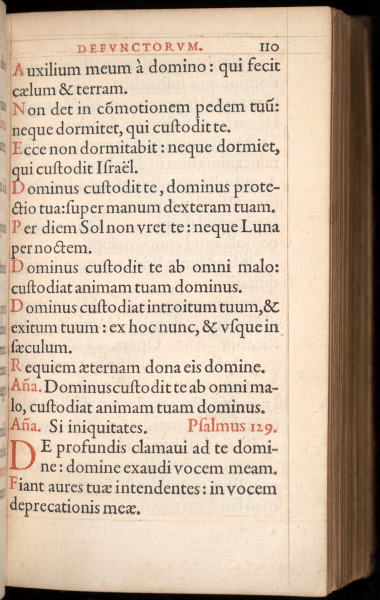 DEFVNCTORVM. 110
Auxilium meum à domino: qui fecit
cælum & terram.
Non det in cōmotionem pedem tuū:
neque dormitet, qui cuſtodit te.
Ecce non dormitabit: neque dormiet,
qui cuſtodit Iſraël.
Dominus cuſtodit te, dominus prote-
ctio tua: ſuper manum dexteram tuam.
Per diem Sol non vret te: neque Luna
per noctem.
Dominus cuſtodit te ab omni malo:
cuſtodiat animam tuam dominus.
Dominus cuſtodiat introitum tuum, &
exitum tuum: ex hoc nunc, & vſque in
ſæculum.
Requiem æternam dona eis domine.
Aña. Dominus cuſtodit te ab omni ma-
lo, cuſtodiat animam tuam dominus.
Aña. Si iniquitates. Pſalmus 129.
DE profundis clamaui ad te domi-
ne: domine exaudi vocem meam.
Fiant aures tuæ intendentes: in vocem
deprecationis meæ.